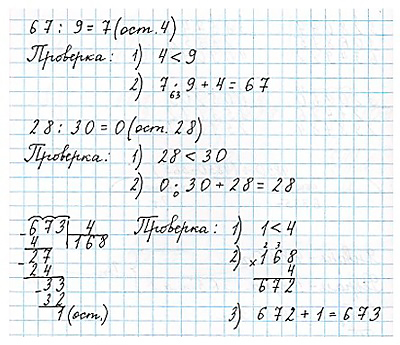 67 : 9 = 7 (ост. 4)
Проверка: 1) 4 < 9
2) 7 · 9 + 4 = 67
63
28 : 30 = 0 (ост. 28)
Проверка: 1) 28 < 30
2) 0 · 30 + 28 = 28
0
-673 | 4
4 | 168
-27
24
-33
32
1 (ост.)
Проверка: 1) 1 < 4
2 3
2) × 168
4
672
3) 672 + 1 = 673